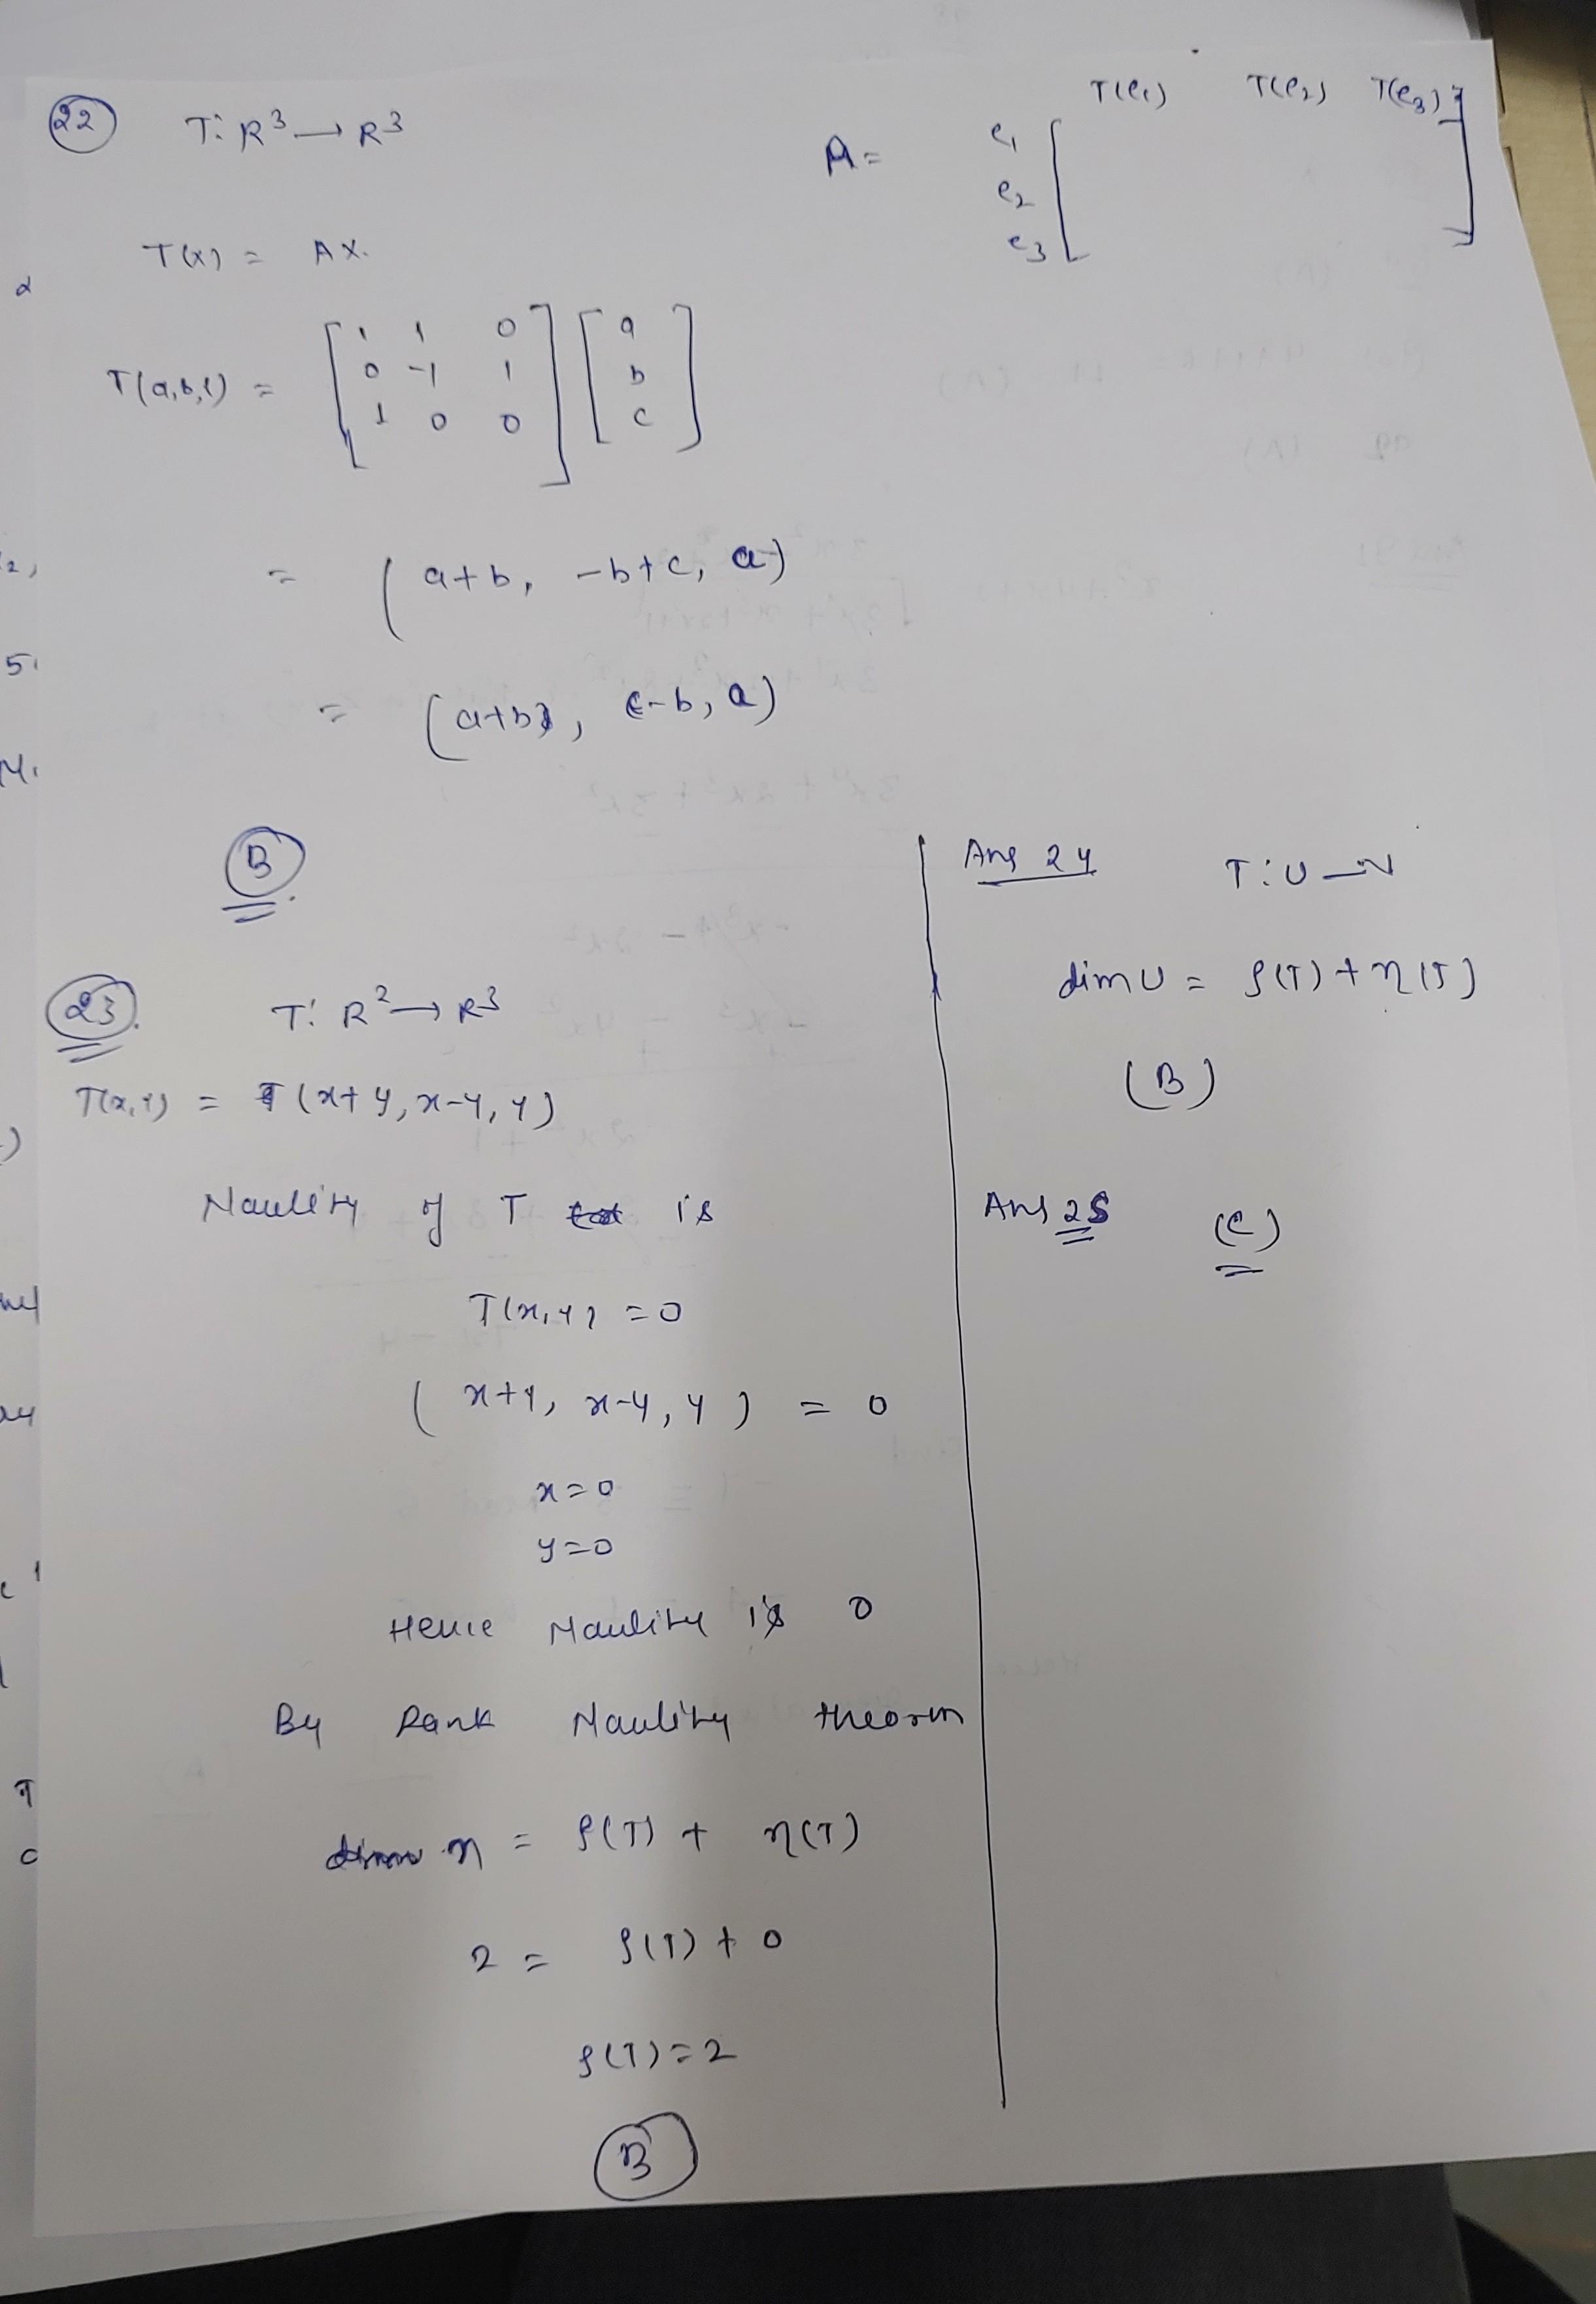 22 T: R³ → R³
A = T(e₁) T(e₂) T(e₃)
e₁
e₂
e₃
T(x) = AX.
T(a,b,c) = [1 1 0] [a]
[0 -1 1] [b]
[1 0 0] [c]
= (a+b, -b+c, a)
= (a+b, c-b, a)
B
23. T: R² → R³
T(x,y) = (x+y, x-y, y)
Naulity of T is
T(x,y) = 0
(x+y, x-y, y) = 0
x=0
y=0
Hence Naulity is 0
By Rank Naulity theorm
n = ρ(T) + η(T)
2 = ρ(T) + 0
ρ(T) = 2
B
Ans 24 T: U → V
dim U = ρ(T) + η(T)
(B)
Ans 25 (C)